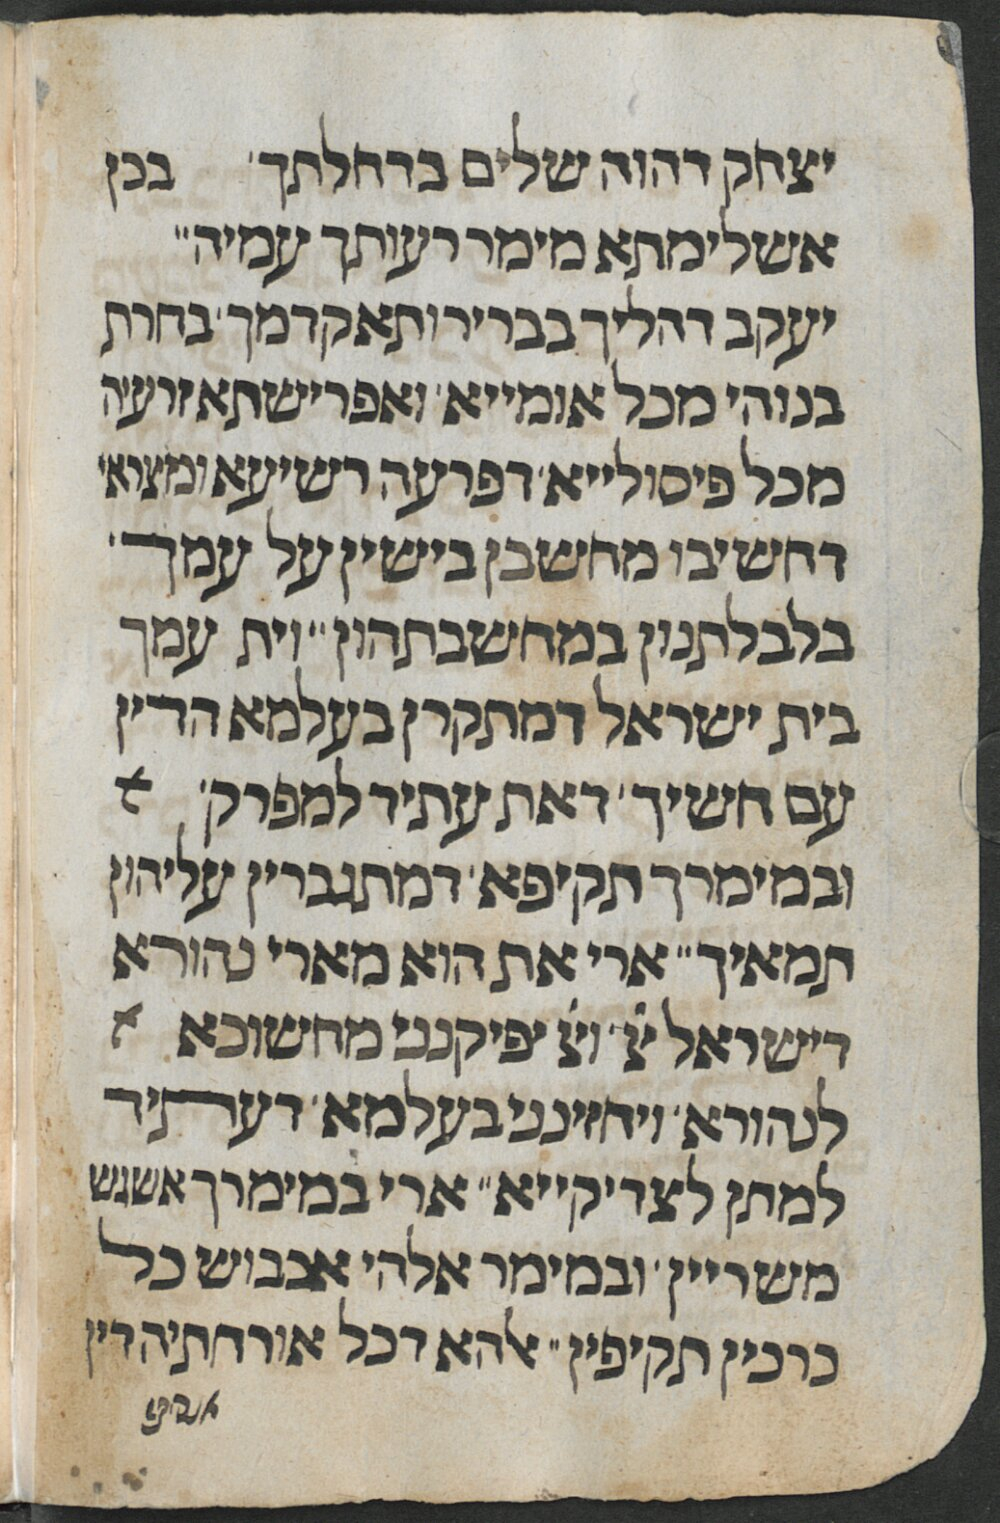 יצחק דהוה שלים בדחלתך׳ בכן
אשלימתא מימר רעותך עמיה״
יעקב דהליך בברירותא קדמך׳ בחרת
בנוהי מכל אומייא׳ ואפרישתא זרעיה
מכל פיסולייא׳ דפרעה רשיעא ומצראי
דחשיבו מחשבן בישין על עמך׳
בלבלתנון במחשבתהון״ וית עמך
בית ישראל דמתקרן בעלמא הדין
עם חשיך׳ דאת עתיד למפרק׳
ובמימרך תקיפא׳ דמתגברין עליהון
תמאיך״ ארי את הוא מארי נהורא
דישראל יֹיֹ׳ ויֹיֹ יפיקנני מחשוכא
לנהורא׳ ויחזינני בעלמא׳ דעתיד
למתן לצדיקייא״ ארי במימרך אשגש
משריין׳ ובמימר אלהי אכבוש כל
כרכין תקיפין״ אלהא דכל אורחתיה דין